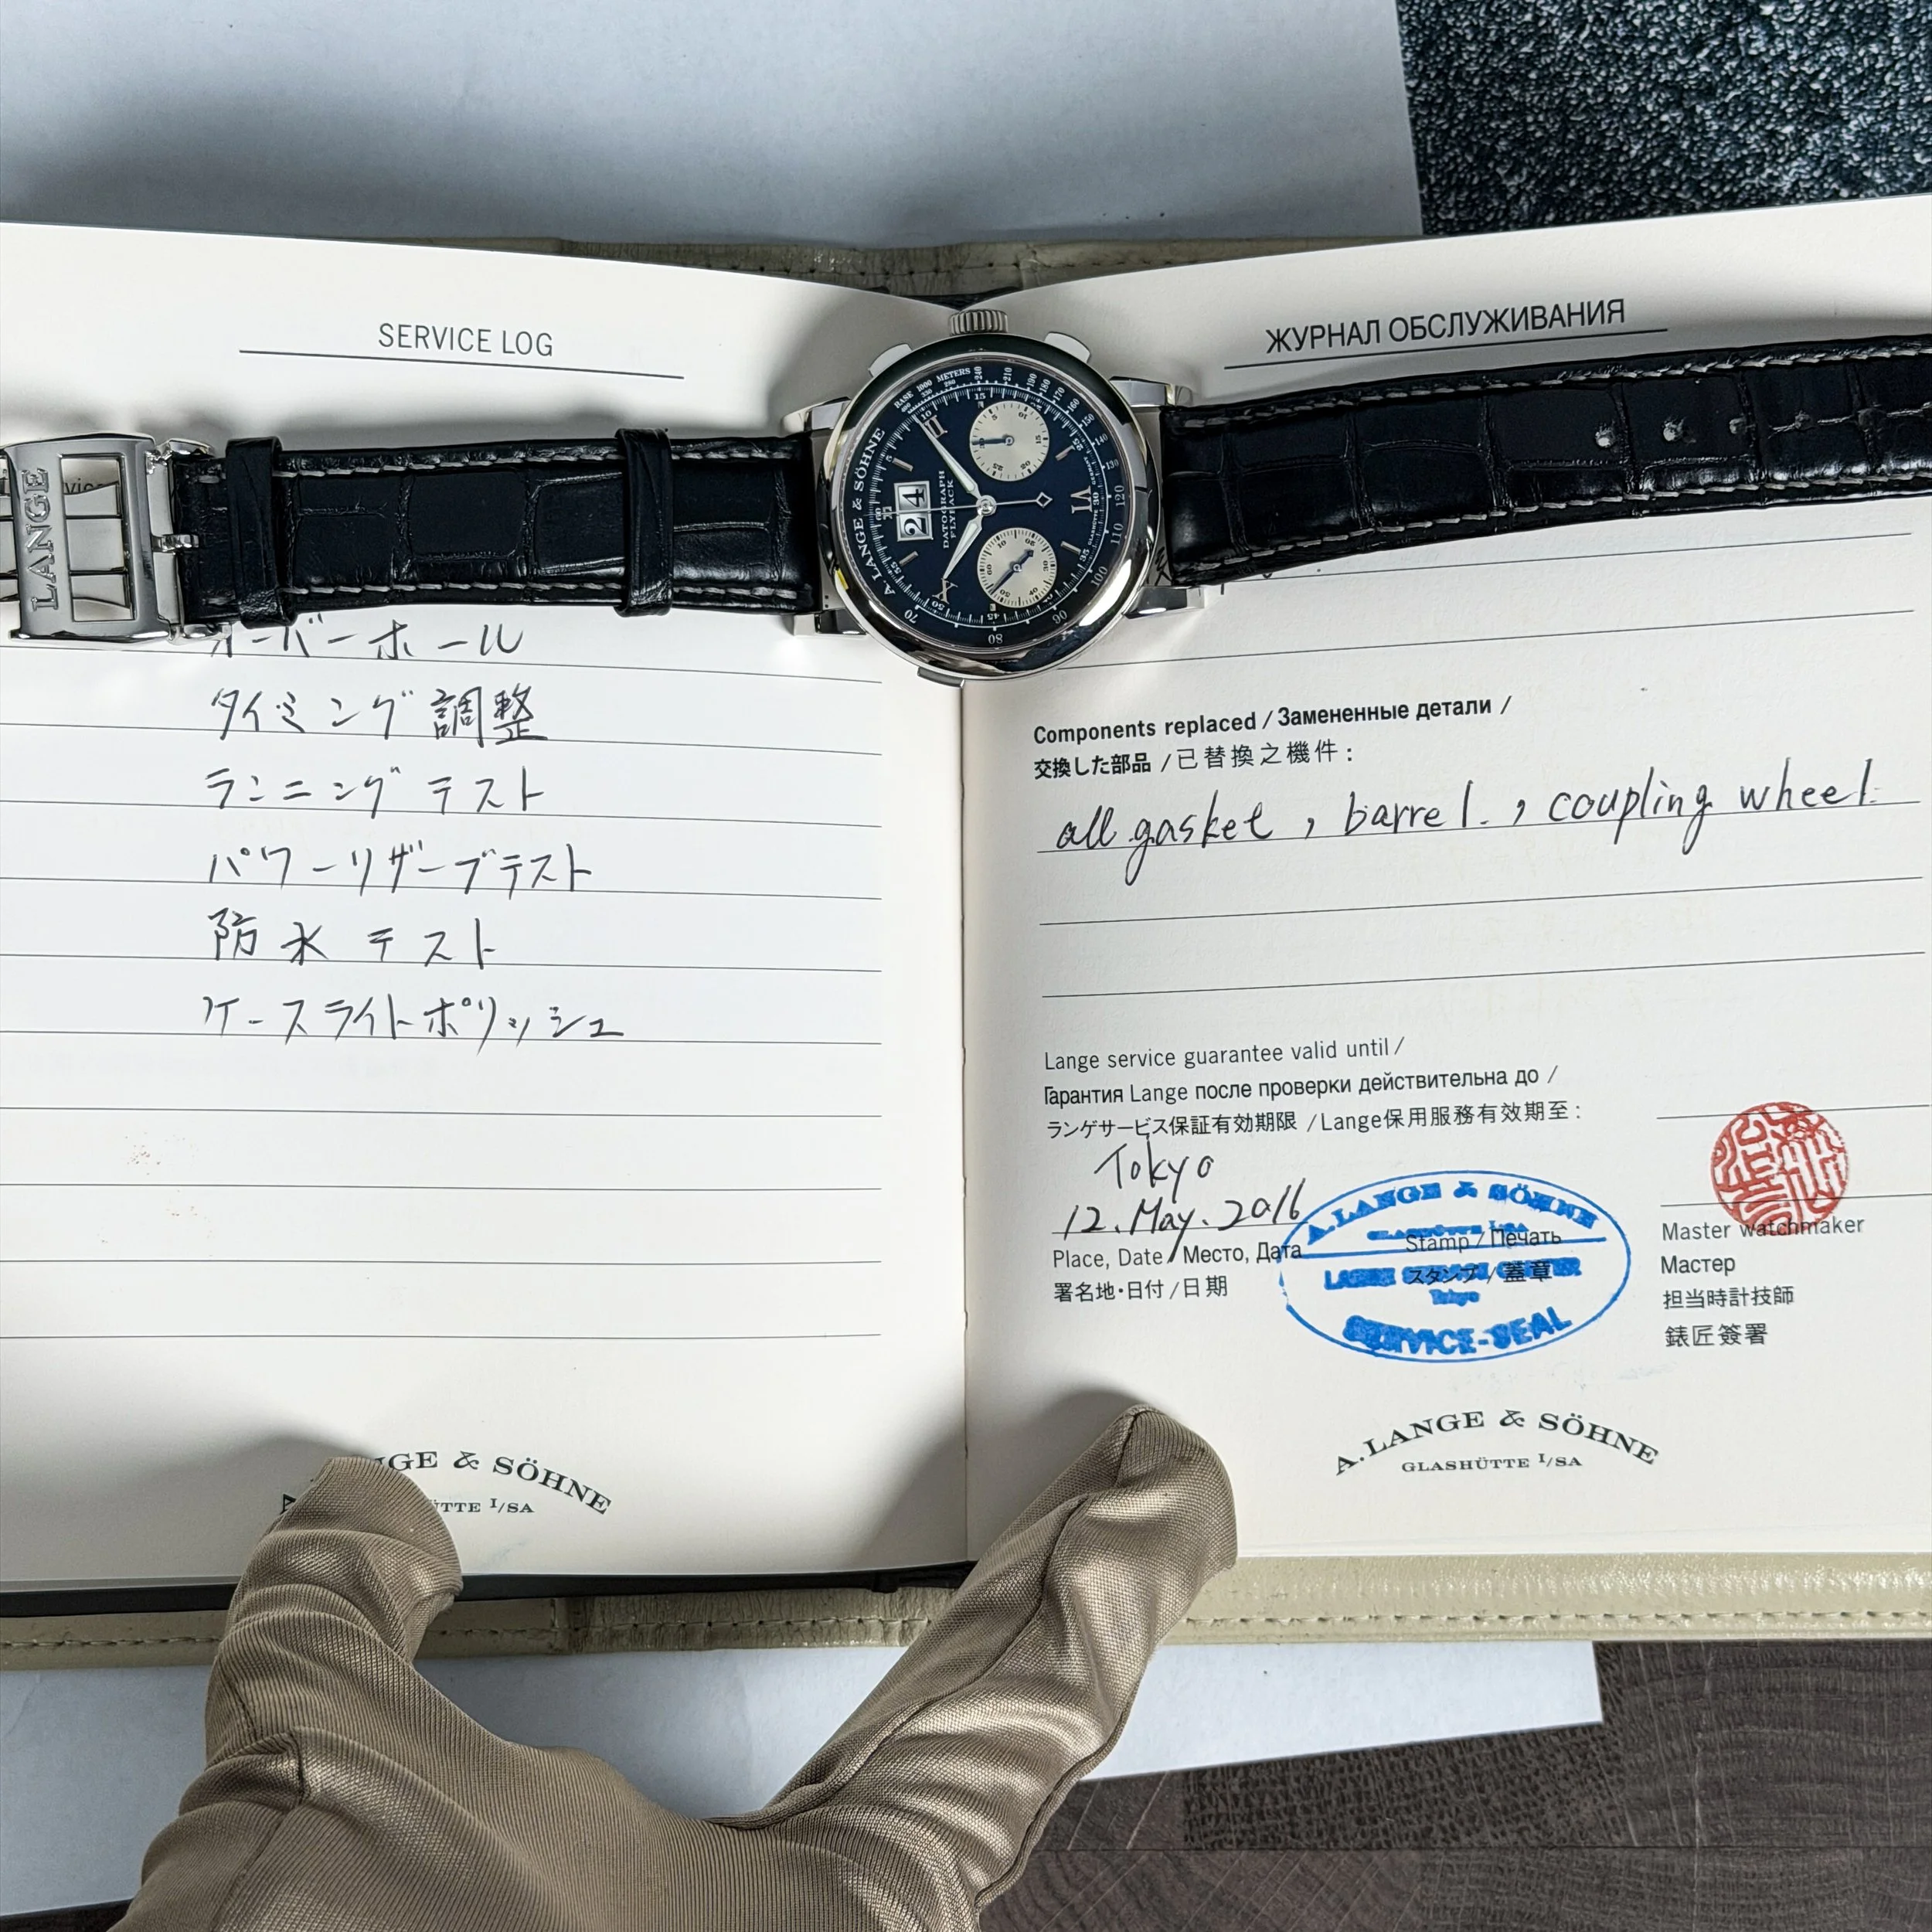 SERVICE LOG
LANGE
オーバーホール
タイミング調整
ランニングテスト
パワーリザーブテスト
防水テスト
ケースライトポリッシュ
GE & SÖHNE
I/SA
A. LANGE & SÖHNE
24
DATOGRAPH
FLYBACK
BASE 1000 METERS
ЖУРНАЛ ОБСЛУЖИВАНИЯ
Components replaced / Замененные детали /
交換した部品 / 已替換之機件 :
all gasket , barrel. , coupling wheel.
Lange service guarantee valid until /
Гарантия Lange после проверки действительна до /
ランゲサービス保証有効期限 / Lange保用服務有效期至 :
Tokyo
12. May. 2016
Place, Date / Место, Дата
署名地・日付 / 日期
A. LANGE & SÖHNE
GLASHÜTTE I/SA
LANGE SERVICE CENTER
Tokyo
SERVICE-SEAL
Stamp / Печать
スタンプ / 蓋章
Master watchmaker
Мастер
担当時計技師
錶匠簽署
A. LANGE & SÖHNE
GLASHÜTTE I/SA